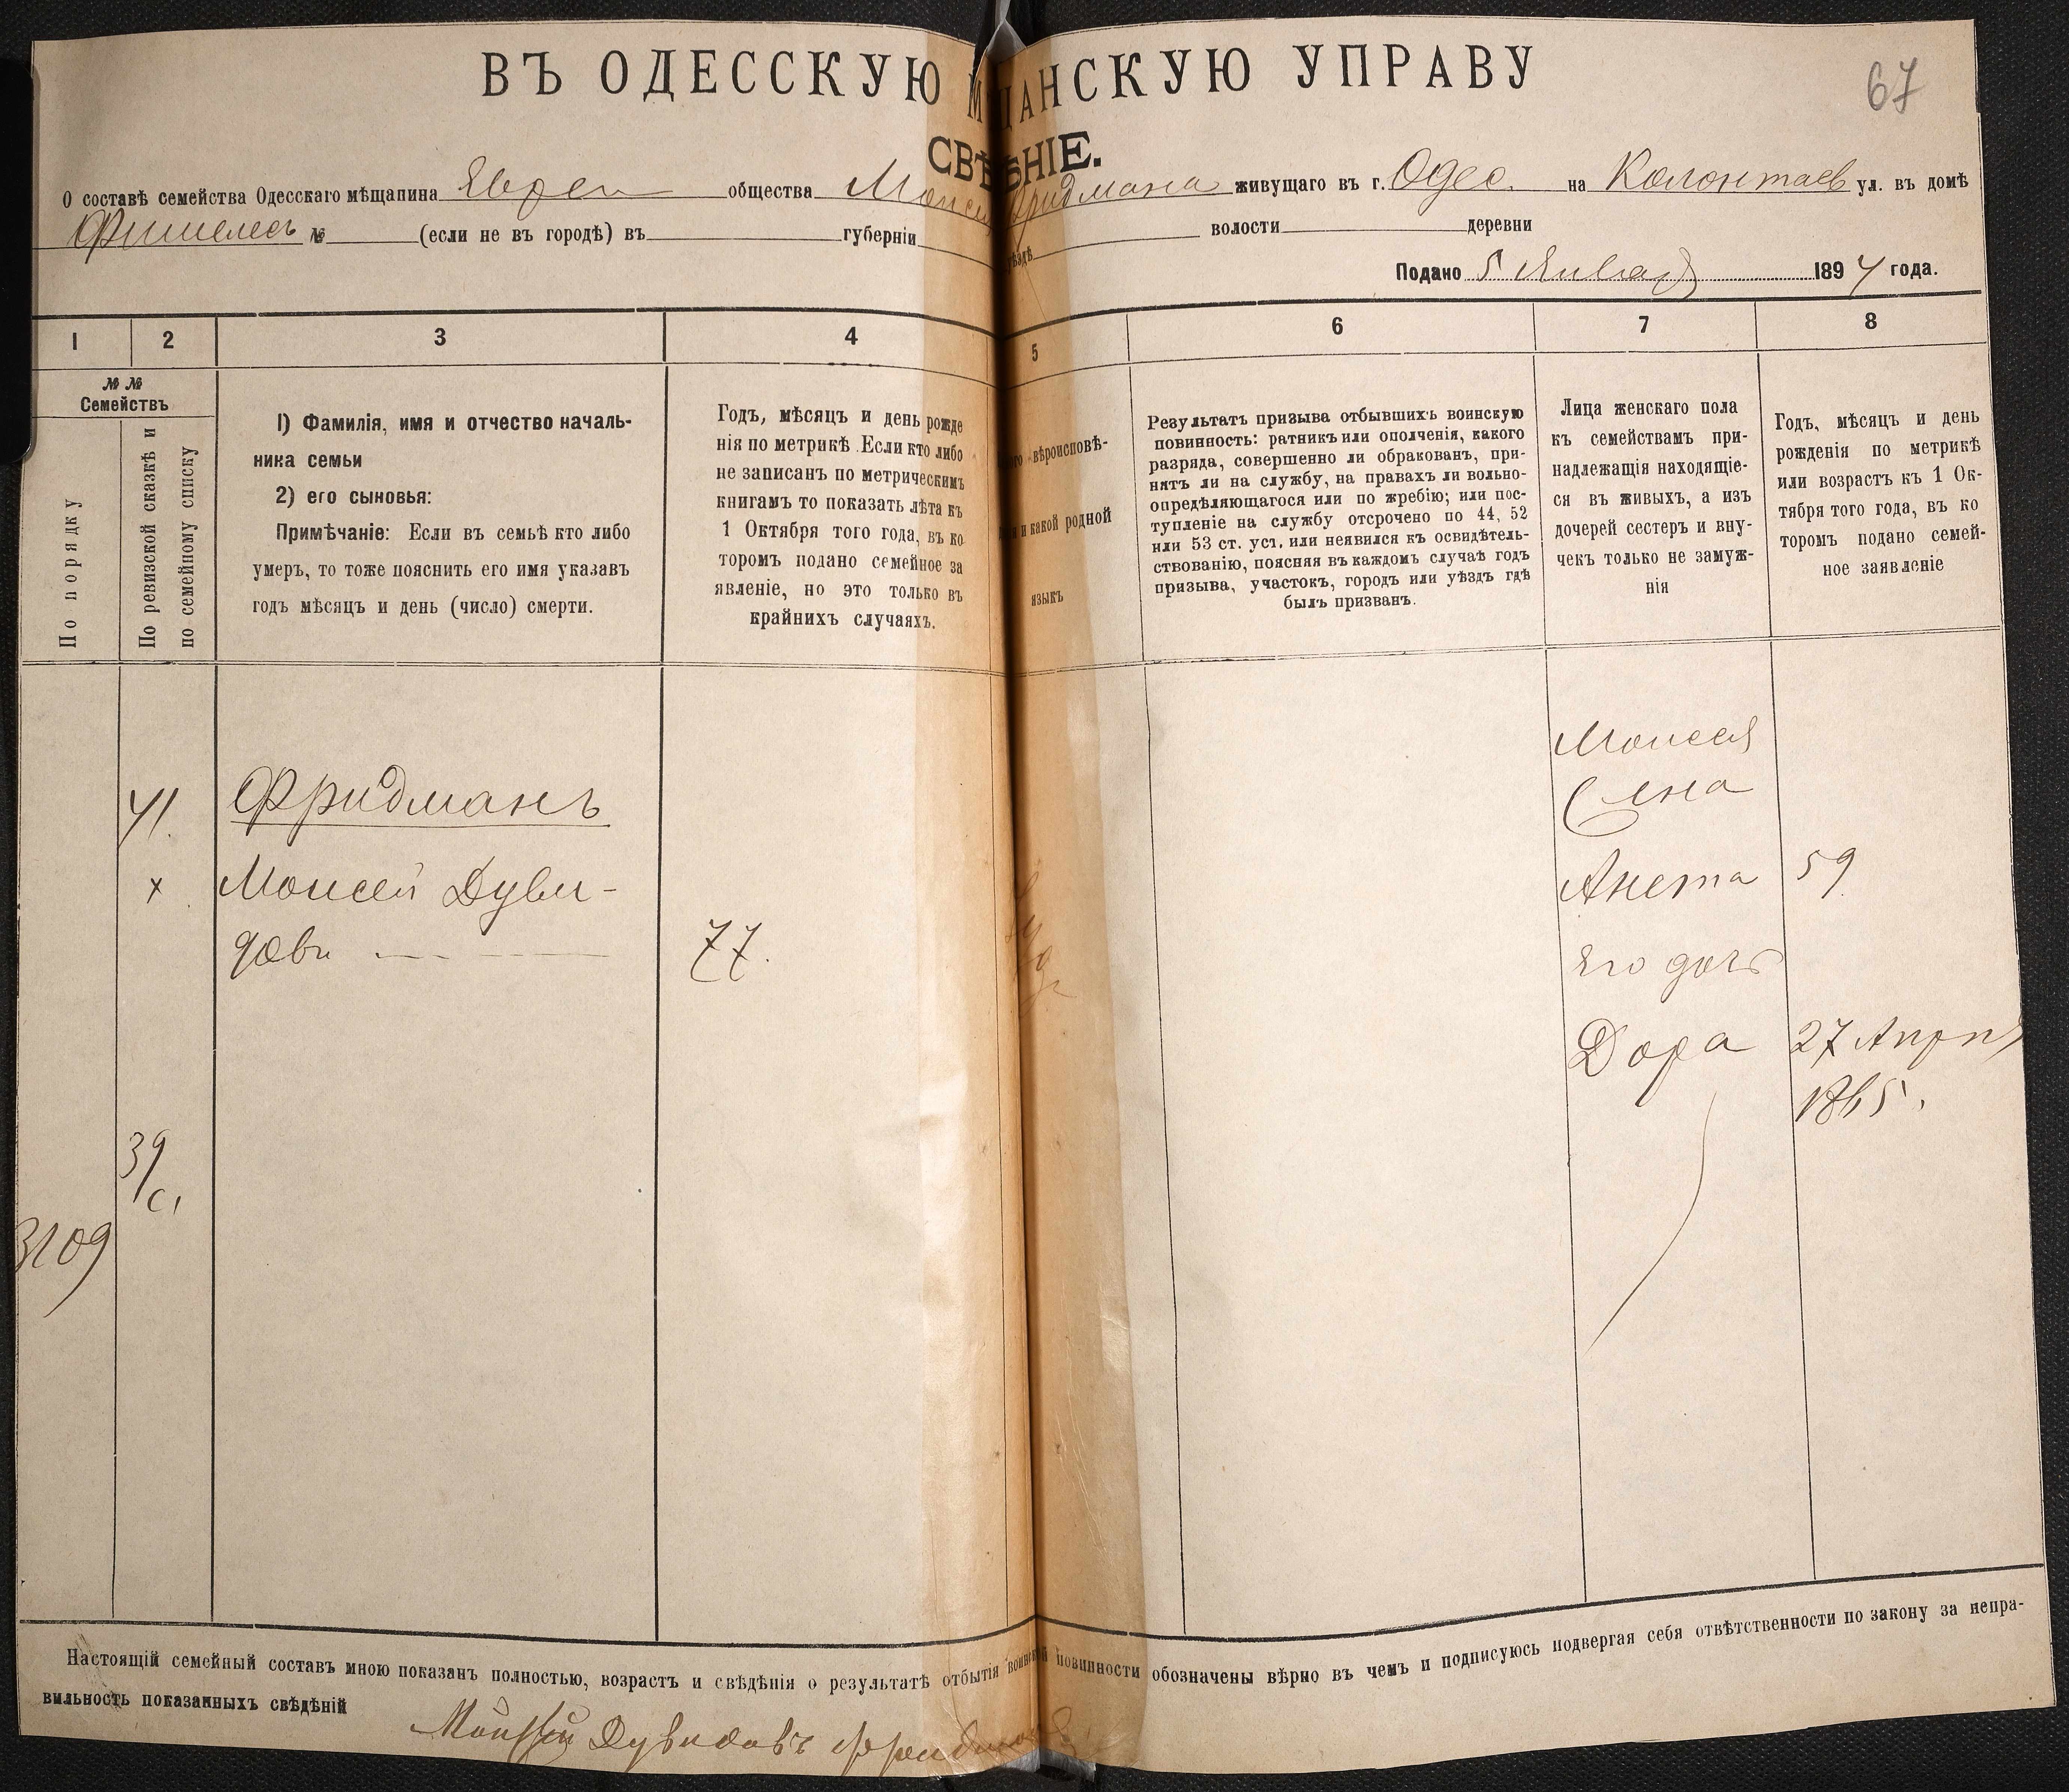 ВЪ ОДЕССКУЮ М ЩАНСКУЮ УПРАВУ
67
СВѢ НІЕ.
О составѣ семейства Одесскаго мѣщанина Евреи общества Моисей Фридмана живущаго въ г. Одес. на Колонтаев ул. въ домѣ
Фишелесъ № (если не въ городѣ) въ губерніи уѣздѣ волости деревни
Подано 5 Января 1894 года.
1 2 3 4 5 6 7 8
№ №
Семействъ
По порядку
По ревизской сказкѣ и
по семейному списку
1) Фамилія, имя и отчество началь-
ника семьи
2) его сыновья:
Примѣчаніе: Если въ семьѣ кто либо
умеръ, то тоже пояснить его имя указавъ
годъ мѣсяцъ и день (число) смерти.
Годъ, мѣсяцъ и день рожде
нія по метрикѣ. Если кто либо
не записанъ по метрическимъ
книгамъ то показать лѣта къ
1 Октября того года, въ ко
торомъ подано семейное за
явленіе, но это только въ
крайнихъ случаяхъ.
вѣроисповѣ-
и какой родной
языкъ
Результатъ призыва отбывшихъ воинскую
повинность: ратникъ или ополченія, какого
разряда, совершенно ли обракованъ, при-
нятъ ли на службу, на правахъ ли вольно-
опредѣляющагося или по жребію; или пос-
тупленіе на службу отсрочено по 44, 52
или 53 ст. уст. или неявился къ освидѣтель-
ствованію, поясняя въ каждомъ случаѣ годъ
призыва, участокъ, городъ или уѣздъ гдѣ
былъ призванъ.
Лица женскаго пола
къ семействамъ при-
надлежащія находящіе-
ся въ живыхъ, а изъ
дочерей сестеръ и вну-
чекъ только не замуж-
нія
Годъ, мѣсяцъ и день
рожденія по метрикѣ
или возрастъ къ 1 Ок-
тября того года, въ ко
торомъ подано семей-
ное заявленіе
41.
Фридманъ
х
Моисей Дуви-
дови
77.
Моисея
жена
Анета 59
Его дочь
Дора 27 Апрля
1865.
39/
3109
Настоящій семейный составъ мною показанъ полностью, возрастъ и свѣдѣнія о результатѣ отбытія воинской повинности обозначены вѣрно въ чемъ и подписуюсь подвергая себя отвѣтственности по закону за непра-
вильность показанныхъ свѣдѣній
Мойсей Дувидовъ